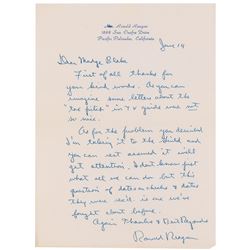 Ronald Reagan
1669 San Onofre Drive
Pacific Palisades, California
June 19
Dear Madge Blake
First of all thanks for
your kind words. As you can
imagine some letters about the
in T.V. guide was not
so nice.
As for the problem you described
I'm taking it to the Guild and
you can rest assured it will get
attention. I don't know just
what all we can do but this
question of dates on checks & dates
they were rec'd. is one we've
fought about before.
Again Thanks & Best Regards
Ronald Reagan